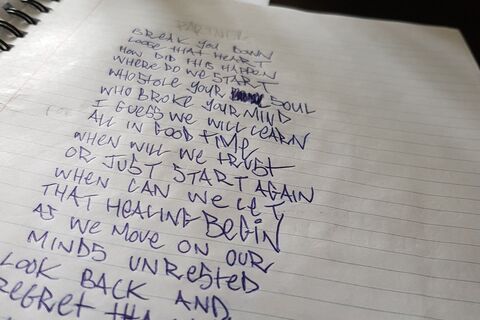 BREAK YOU DOWN
LOOSE THAT HEART
HOW DID THIS HAPPEN
WHERE DO WE START
WHO STOLE YOUR SOUL
WHO BROKE YOUR MIND
I GUESS WE WILL LEARN
ALL IN GOOD TIME
WHEN WILL WE TRUST
OR JUST START AGAIN
WHEN CAN WE LET
THAT HEALING BEGIN
AS WE MOVE ON OUR
MINDS UNRESTED
LOOK BACK AND
REGRET